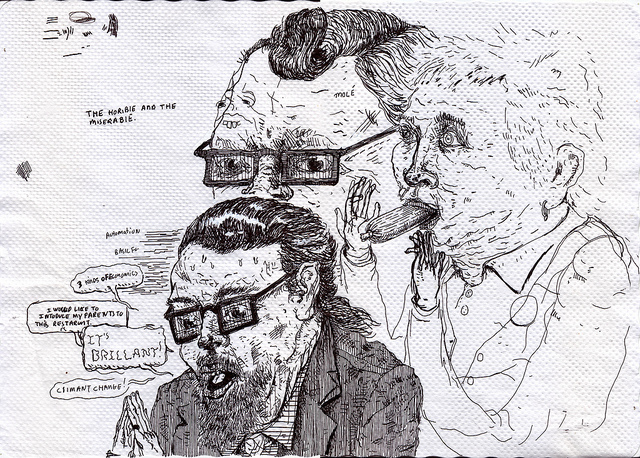 THE HORIBLE AND THE
MISERABLE.
MOLÉ
AUTOMATION
3 KINDS OF ECONOMICS
I WOULD LIKE TO
INTODUCE MY PARENTS TO
THIS RESTARUNT
IT'S
BRILLANT!
CLIMANT CHANGE!